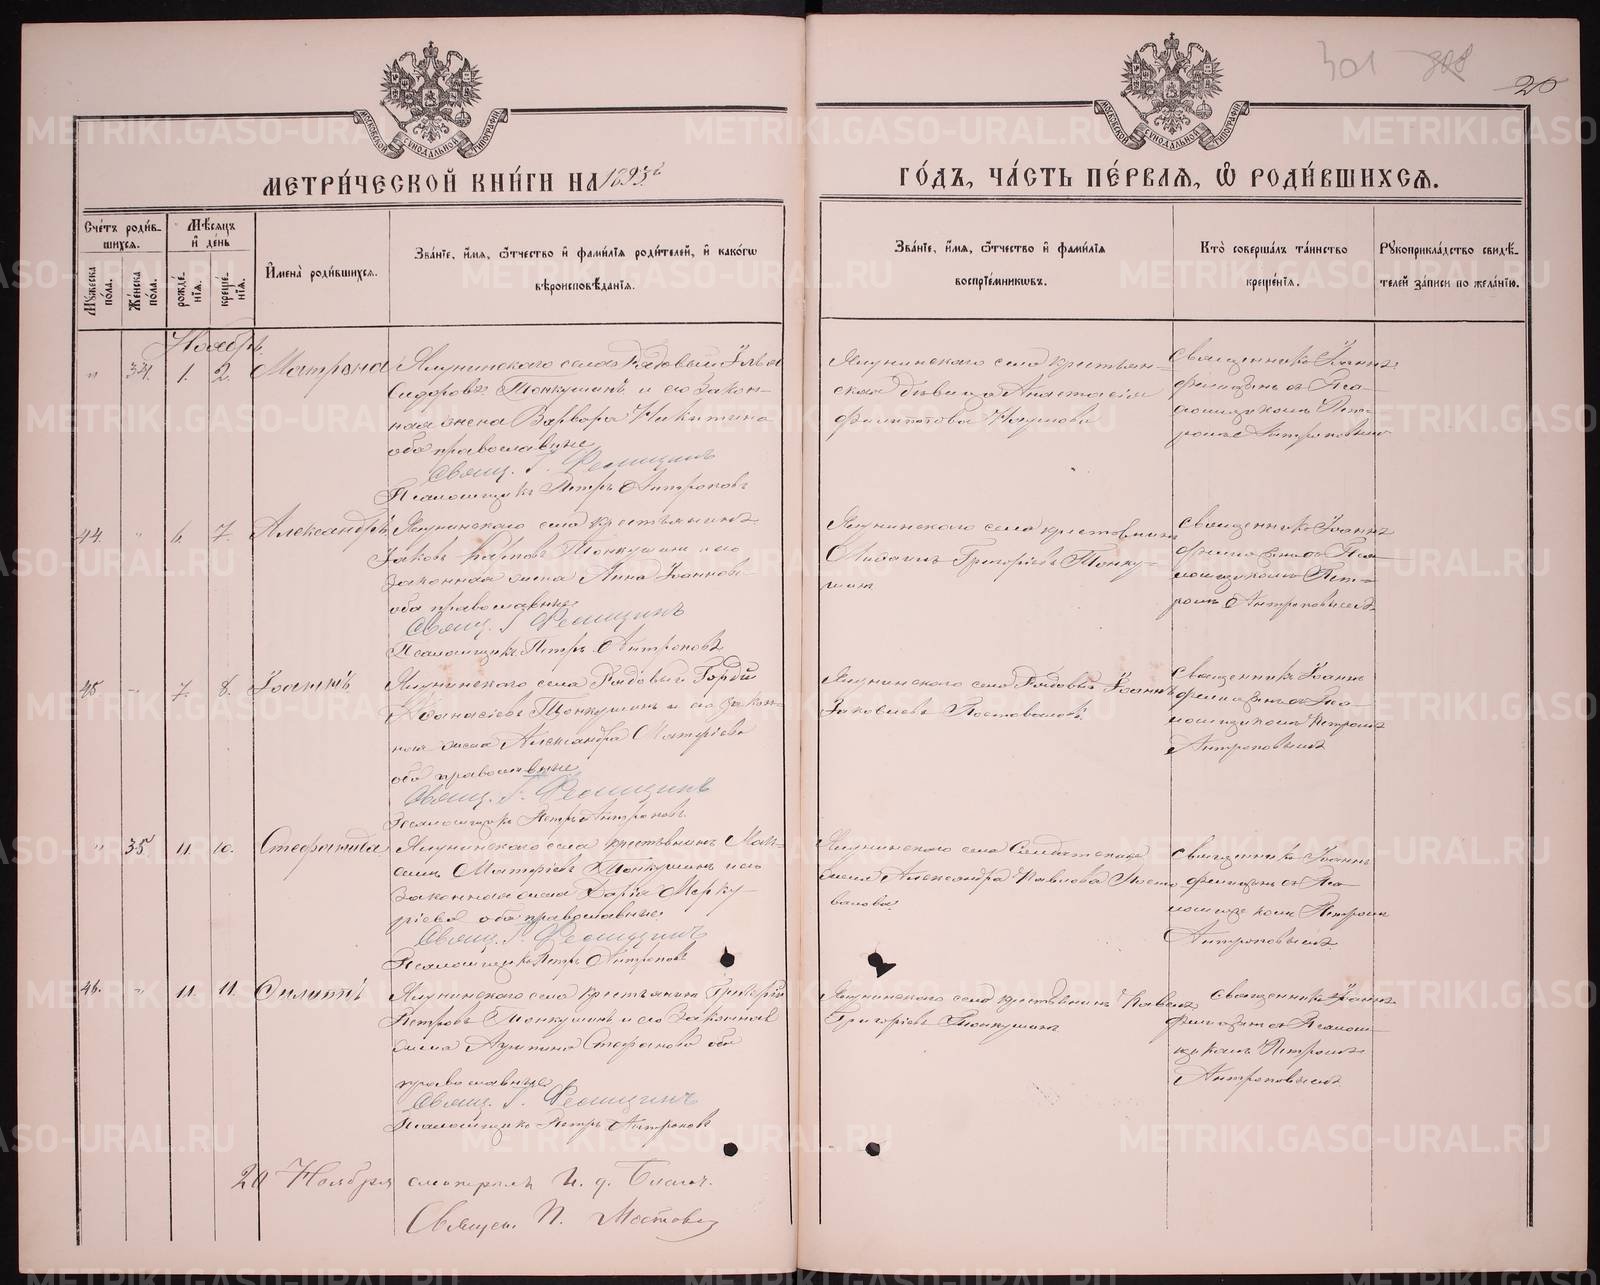 301 808 20
МОСКОВСКОЙ СѴНОДАЛЬНОЙ ТИПОГРАФІИ
МОСКОВСКОЙ СѴНОДАЛЬНОЙ ТИПОГРАФІИ
МЕТРИ́ЧЕСКОЙ КНИ́ГИ НА 1893й
ГО́ДЪ, ЧА́СТЬ ПЕ́РВАѦ, Ѽ РОДИ́ВШИХСѦ.
Сче́тъ роди́в-
шихсѧ.
Мꙋ́жеска по́ла.
Же́нска по́ла.
Мѣ́сѧцъ
и҆ де́нь
рожде́-
нїѧ.
креще́-
нїѧ.
И҆мена̀ роди́вшихсѧ.
Зва́нїе, и҆́мѧ, ѻ҆́тчество и҆ фами́лїѧ роди́телей, и҆ како́гѡ
вѣроисповѣ́данїѧ.
Зва́нїе, и҆́мѧ, ѻ҆́тчество и҆ фами́лїѧ
воспрїе́мникѡвъ.
Кто̀ соверша́лъ та́инство
креще́нїѧ.
Рꙋкоприкла́дство свидѣ́-
телей за́писи по жела́нїю.
Ноябрь
" 34. 1. 2. Матрона
Ялунинскаго села Рядовый Илья
Сидоровъ Тонкушинъ и его закон-
ная жена Варвара Никитина
оба православные
Свящ. І. Филицинъ
Псаломщикъ Петръ Антроповъ
Ялунинскаго села крестьян-
ская дѣвица Анастасія
Филиппова
Священникъ Іоаннъ
Филицинъ съ Пса-
ломщикомъ Пет-
ромъ Антроповымъ
44. " 6. 7. Александръ
Ялунинскаго села крестьянинъ
Іаковъ Тонкушинъ и его
законная жена Анна Іоаннова
оба православные
Свящ. І. Филицинъ
Псаломщикъ Петръ Антроповъ
Ялунинскаго села крестьянинъ
Григорьевъ Тонку-
шинъ
Священникъ Іоаннъ
Филицинъ съ Пса-
ломщикомъ Пет-
ромъ Антроповымъ
45 " 7. 8. Іоаннъ
Ялунинскаго села Рядовый Гордій
Аѳанасіевъ Тонкушинъ и его закон-
ная жена Александра Матѳіева
оба православные
Свящ. І. Филицинъ
Псаломщикъ Петръ Антроповъ
Ялунинскаго села Рядовый Іоаннъ
Іаковлевъ Постоваловъ
Священникъ Іоаннъ
Филицинъ съ Пса-
ломщикомъ Петромъ
Антроповымъ
" 35. 11. 10. Стефанида
Ялунинскаго села крестьянинъ Мак-
симъ Матѳіевъ Тонкушинъ и его
законная жена Дарія Мерку-
ріева оба православные
Свящ. І. Филицинъ
Псаломщикъ Петръ Антроповъ
Ялунинскаго села Солдатская
жена Александра Павлова Посто-
валова
Священникъ Іоаннъ
Филицинъ съ Пса-
ломщикомъ Петромъ
Антроповымъ
46. " 11. 11. Филиппъ
Ялунинскаго села крестьянинъ Григорій
Петровъ Тонкушинъ и его законная
жена Агрипина Стефанова оба
православные
Свящ. І. Филицинъ
Псаломщикъ Петръ Антроповъ
Ялунинскаго села крестьянинъ Павелъ
Григорьевъ Тонкушинъ
Священникъ Іоаннъ
Филицинъ съ Псалом-
щикомъ Петромъ
Антроповымъ
20 Ноября смотрелъ И. д. Благоч.
Священ. П. Мостовъ
METRIKI.GASO-URAL.RU